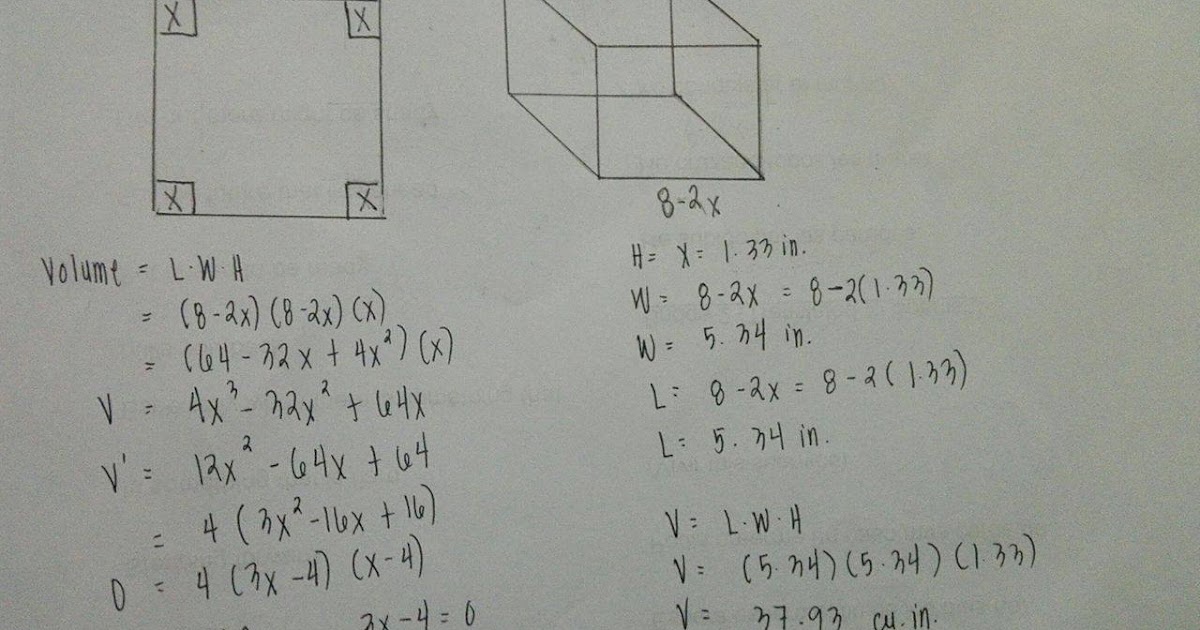 X X
X X
8-2x
Volume = L·W·H
= (8-2x)(8-2x)(x)
= (64-32x+4x²)(x)
V = 4x³-32x²+64x
V' = 12x²-64x+64
= 4(3x²-16x+16)
0 = 4(3x-4)(x-4)
3x-4=0
H= X= 1.33 in.
W= 8-2x = 8-2(1.33)
W= 5.34 in.
L= 8-2x = 8-2(1.33)
L= 5.34 in.
V= L·W·H
V= (5.34)(5.34)(1.33)
V= 37.93 cu.in.